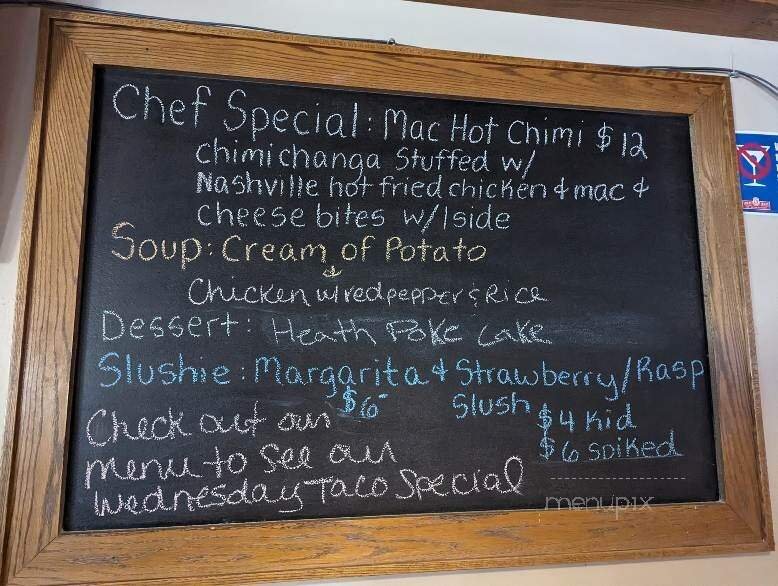 Chef Special: Mac Hot Chimi $12
Chimichanga Stuffed w/
Nashville hot fried chicken & mac &
Cheese bites w/1 side
Soup: Cream of Potato
&
Chicken w/red pepper & Rice
Dessert: Heath Poke Cake
Slushie: Margarita & Strawberry/Rasp
$6 Slush $4 Kid
$6 Spiked
Check out our
menu to see our
Wednesday Taco Special
menupix